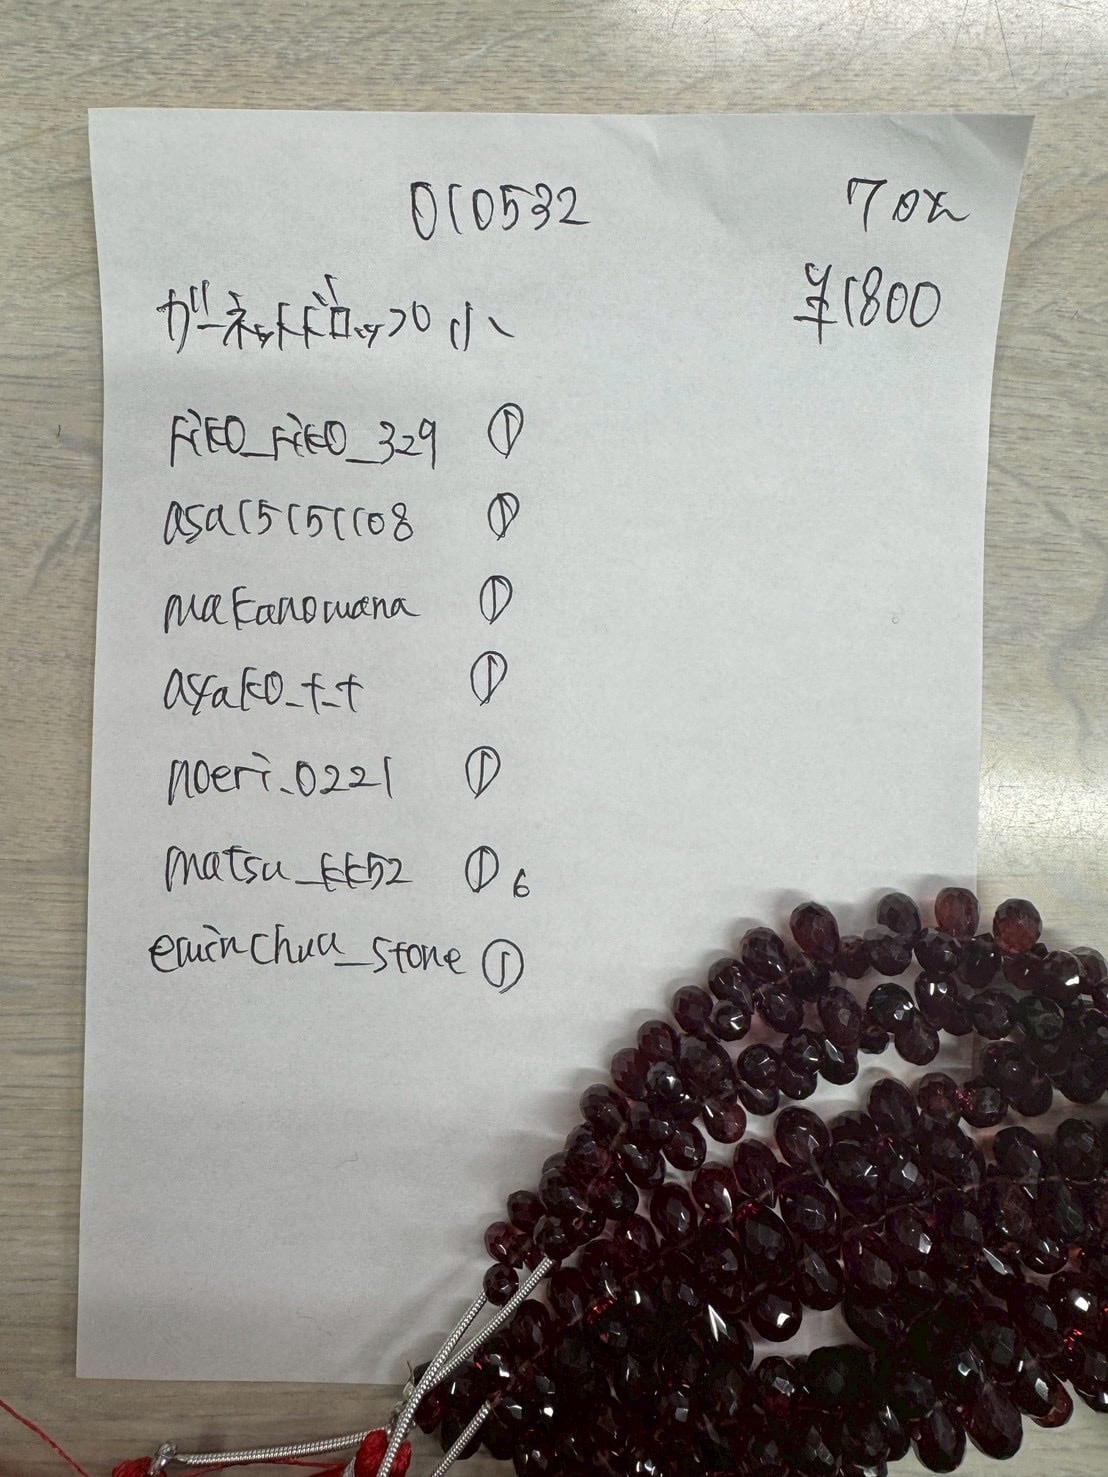 010532
70%
ガーネットドロップ 小
¥1800
riko_riko_329 ①
asa15151108 ①
makanowana ①
ayako_t_t ①
noeri.0221 ①
matsu_kk52 ① 6
eminchua_stone ①